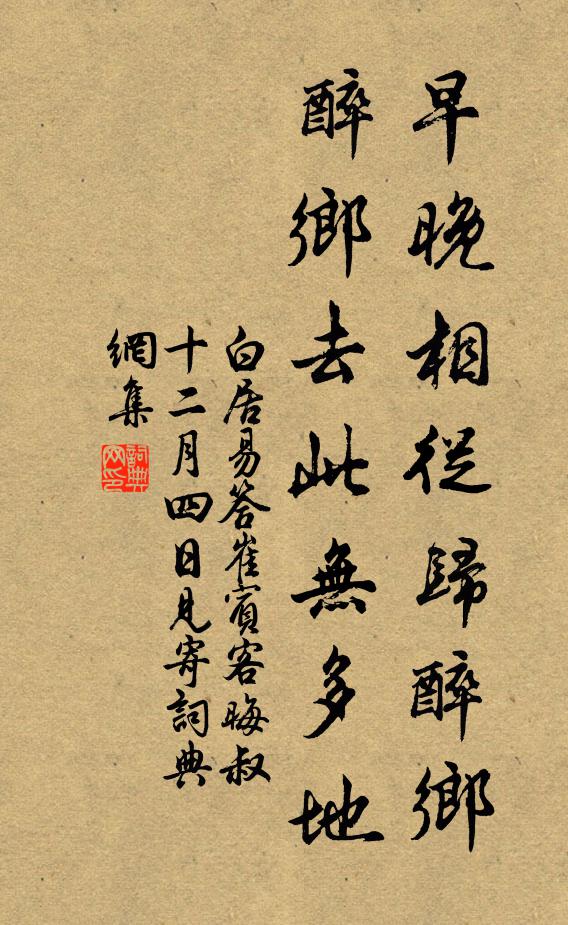 早晚相從歸醉鄉
醉鄉去此無多地
白居易答崔賓客晦叔
十二月四日見寄詞典
網集
詞典网印